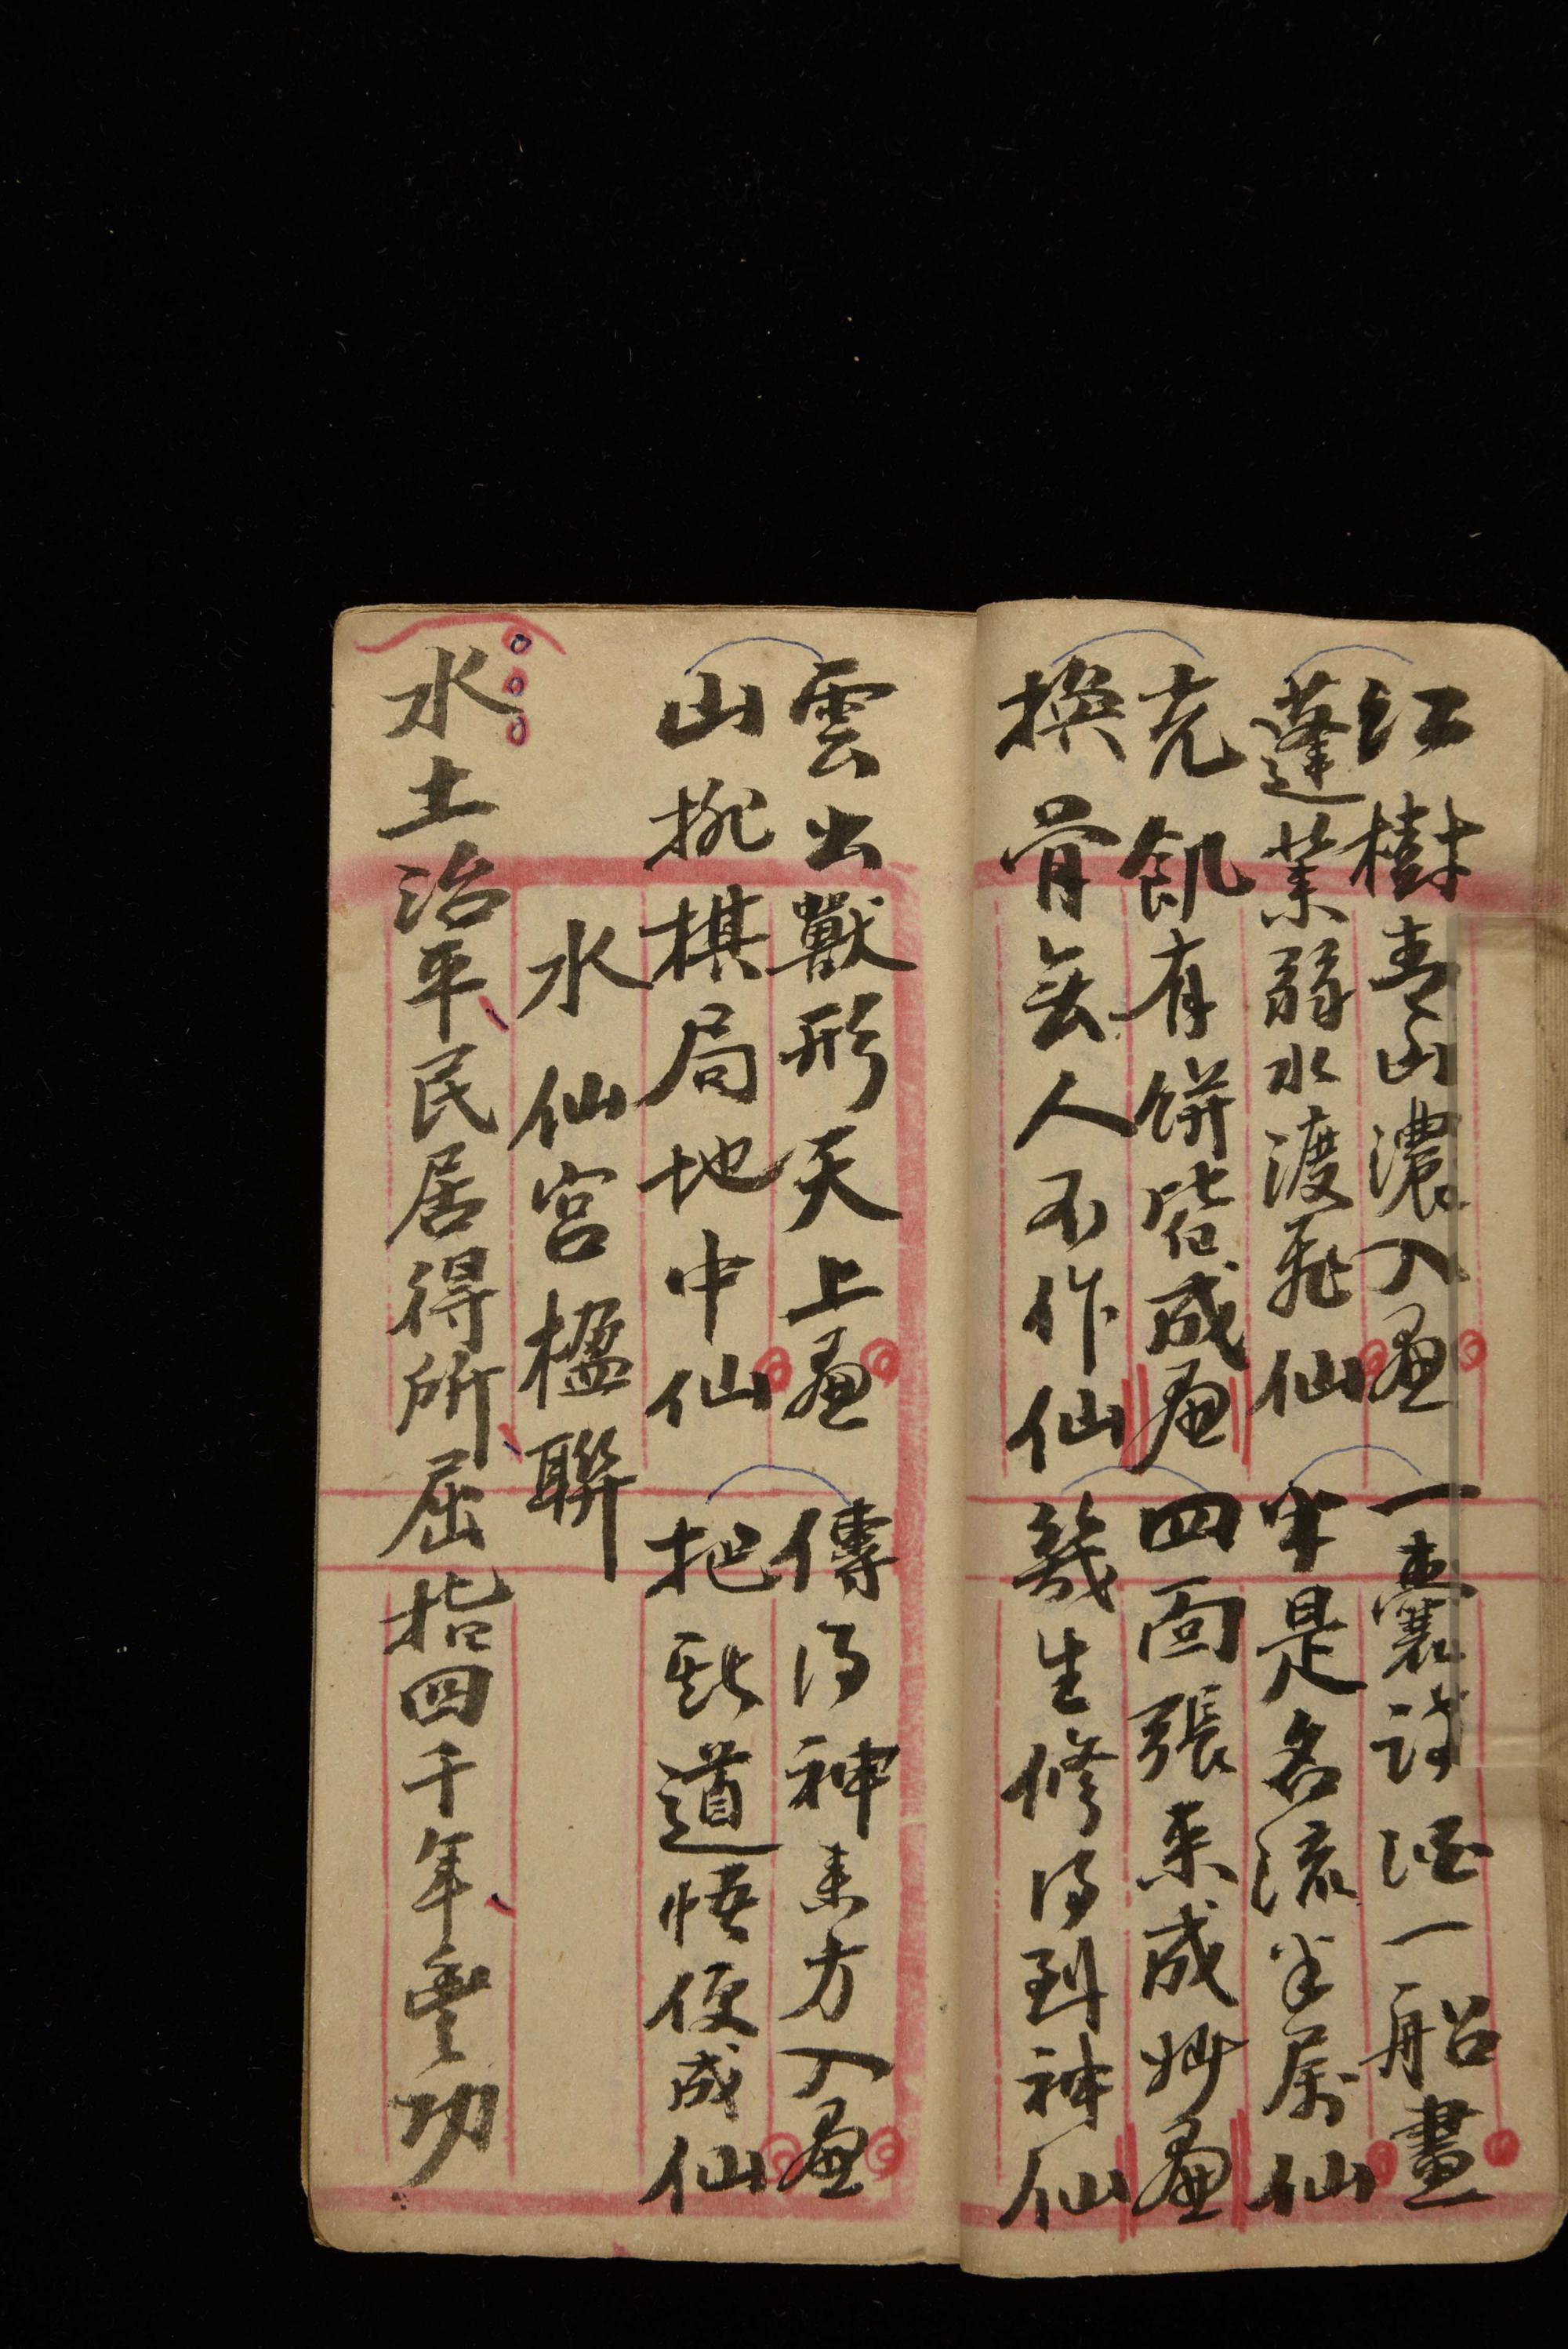 红樹青山濃入画
蓬萊弱水渡飛仙
一囊詩酒一船畫
半是名流半属仙
充飢有餅皆成画
換骨無人不作仙
四面張来成妙画
幾生修得到神仙
雲出獸形天上画
山排棋局地中仙
傳得神来方入画
把此道悟便成仙
水仙宮楹聯
水土治平民居得所屈指四千年豐功